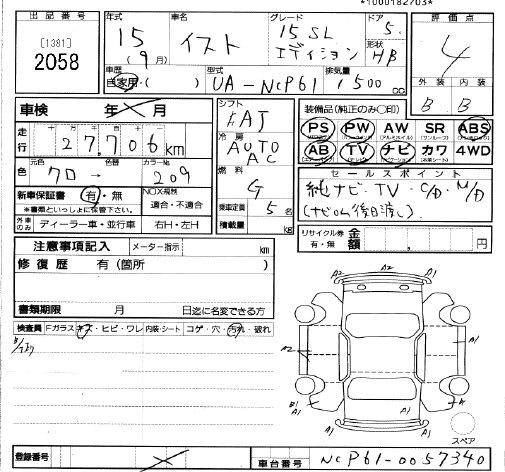 *1000182703*
出品番号 [1381] 2058
年式 15 (9月) 車名 イスト グレード 15 SL エディション ドア 5 形状 HB
評価点 4 外装 B 内装 B
車歴 自家用( ) 型式 UA-NCP61 排気量 1500 CC
車検 年 月
走行 27,706 km
シフト FAT
冷房 AUTO AC
装備品(純正のみ○印)
PS PW AW SR ABS
AB TV ナビ カワ 4WD
元色 色 クロ → 色替 カラーNo. 209
燃料 G
新車保証書 有・無 NOX規制 適合・不適合
※書類といっしょに保管下さい。
乗車定員 5 名
積載量 kg
外車のみ ディーラー車・並行車 右H・左H
セールスポイント
純ナビ・TV・C/D・M/D
(ナビロム後日渡し)
リサイクル券 有・無 金額 , 円
注意事項記入 メーター指示 km
修復歴 有(箇所 )
書類期限 月 日迄に名変できる方
検査員 Fガラス キズ・ヒビ・ワレ 内装・シート コゲ・穴・汚れ・破れ
A2 A1 A1
A2
A1 A1 A
A1 A1
スペア
登録番号
車台番号 NCP61-0057340